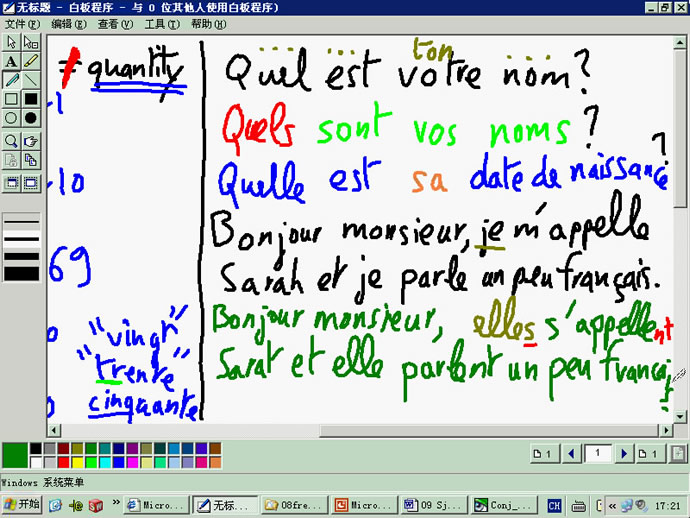 无标题 - 白板程序 - 与 0 位其他人使用白板程序)
文件(F) 编辑(E) 查看(V) 工具(T) 帮助(H)
≠ quantity
-1
-10
69
"vingt"
"trente"
cinquante
ton
Quel est votre nom?
Quels sont vos noms ?
Quelle est sa date de naissance ?
Bonjour monsieur, je m'appelle
Sarah et je parle un peu français.
Bonjour monsieur, elles s'appellent
Sarat et elle parlent un peu françai
1
1
1
Windows 系统菜单
开始
Micro...
无标...
08fre...
Micro...
09 Sj...
Conj_...
CH
17:21